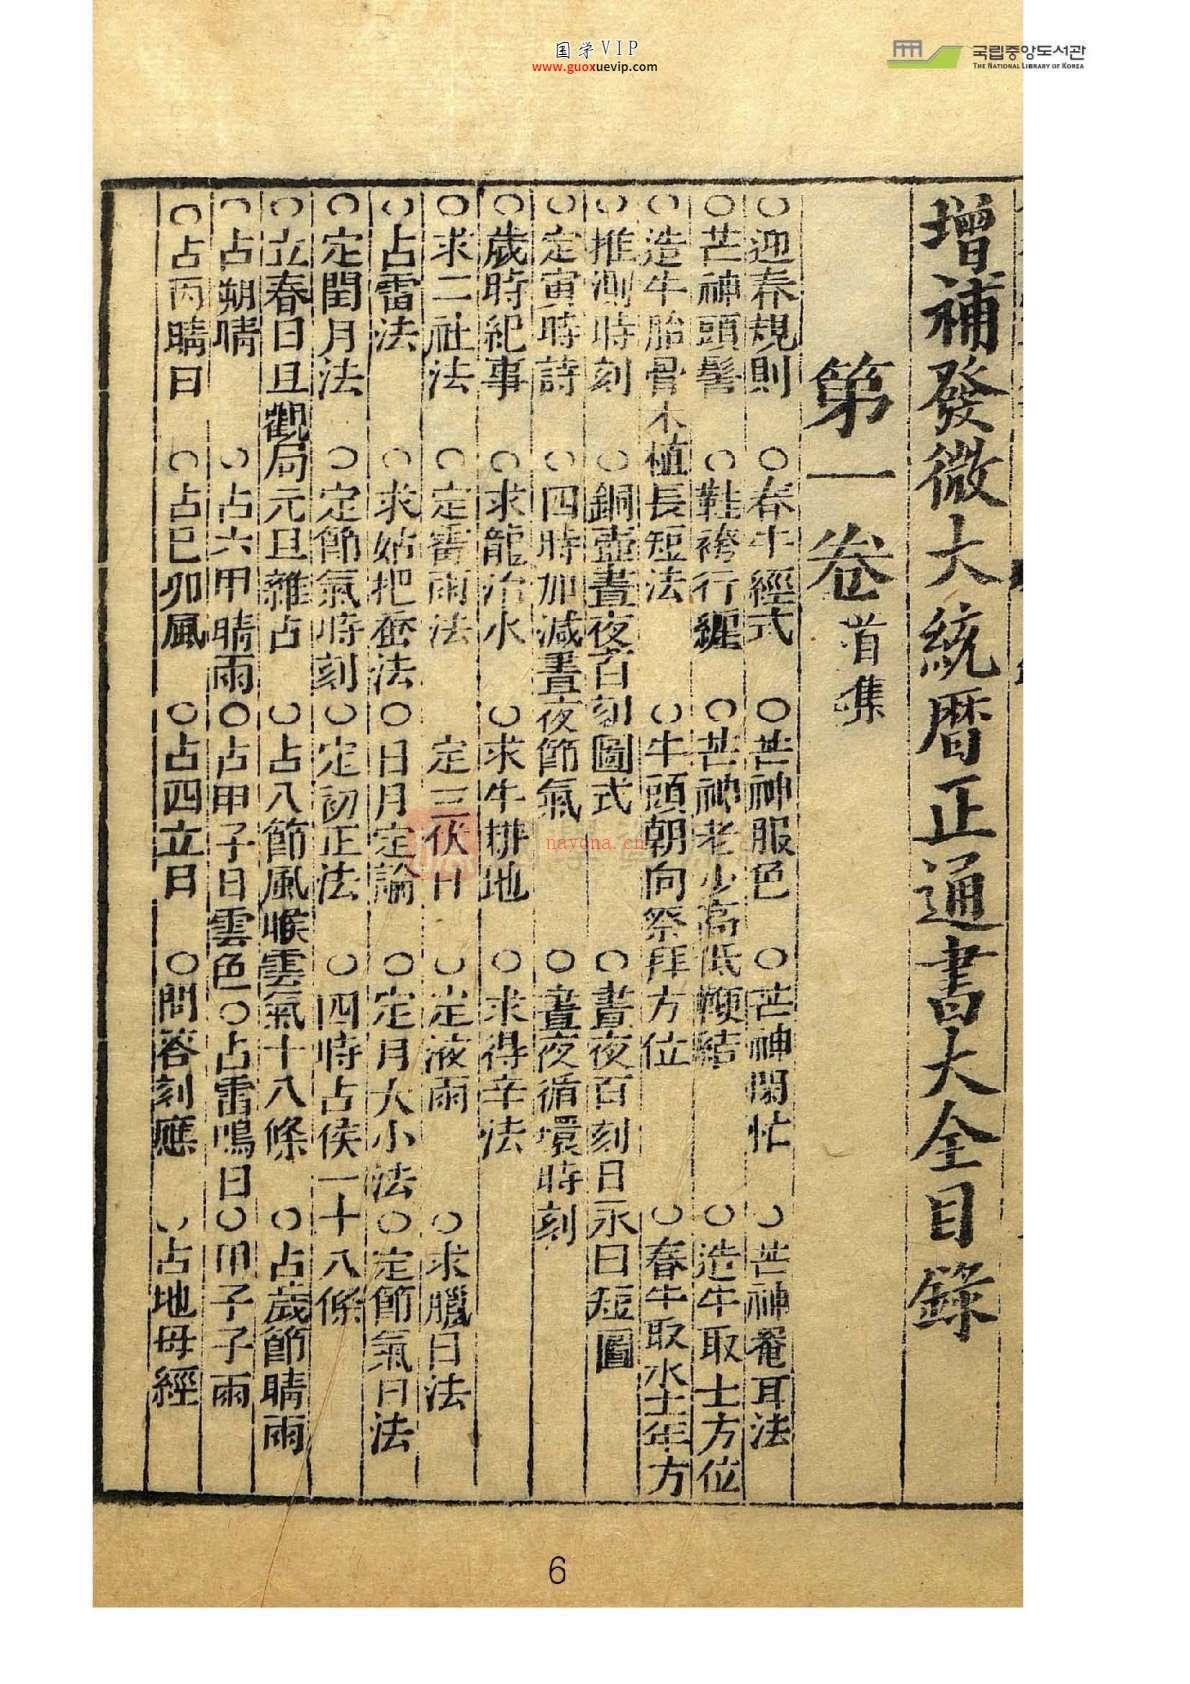 国学VIP
www.guoxuevip.com
국립중앙도서관
THE NATIONAL LIBRARY OF KOREA
增補發微大統曆正通書大全目錄
第一卷 首集
○迎春規則 ○春牛經式 ○芒神服色 ○芒神閑忙 ○芒神罨耳法
○芒神頭髻 ○鞋袴行纏 ○芒神老少高低鞭結 ○造牛取土方位
○造牛胎骨木植長短法 ○牛頭朝向祭拜方位 ○春牛取水土年方
○推測時刻 ○銅壺晝夜百刻圖式 ○晝夜百刻日永日短圖
○定寅時詩 ○四時加減晝夜節氣 ○晝夜循環時刻
○歲時紀事 ○求龍治水 ○求牛耕地 ○求得辛法
○求二社法 ○定霉雨法 定三伏日 ○定液雨 ○求臘日法
○占雷法 ○求姑把蚕法 ○日月定論 ○定月大小法 ○定節氣日法
○定閏月法 ○定節氣時刻 ○定初正法 ○四時占候一十八條
○立春日且觀局元旦雜占 ○占八節風喉雲氣十八條 ○占歲節晴雨
○占朔晴 ○占六甲晴雨 ○占甲子日雲色 ○占雷鳴日 ○甲子子雨
○占丙晴日 ○占巳卯風 ○占四立日 ○問答刻應 ○占地母經
nayona.cn
6